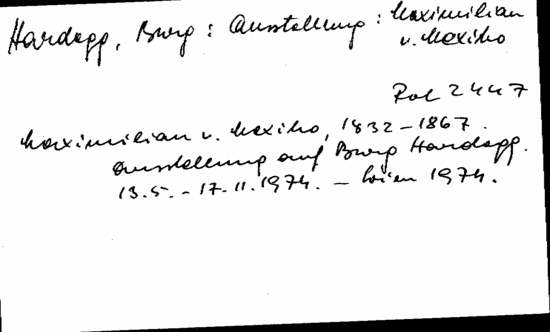 Hardegg, Burg : Ausstellung : Maximilian
v. Mexiko
Rot 2447
Maximilian v. Mexiko, 1832-1867.
Ausstellung auf Burg Hardegg.
13.5. - 17.11.1974. - Wien 1974.